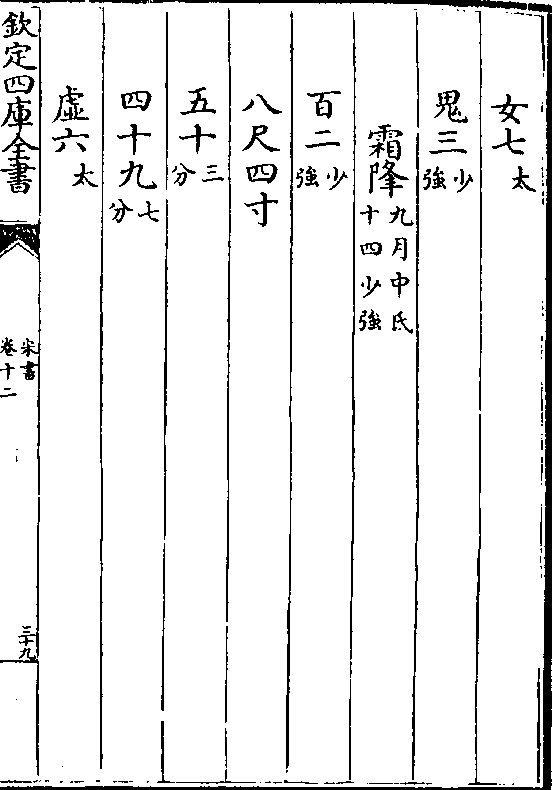 女七太
鬼三少強
霜降九月中氐十四少強
百二少強
八尺四寸
五十三分
四十九七分
虛六太
欽定四庫全書
宋書
卷十二
三十九